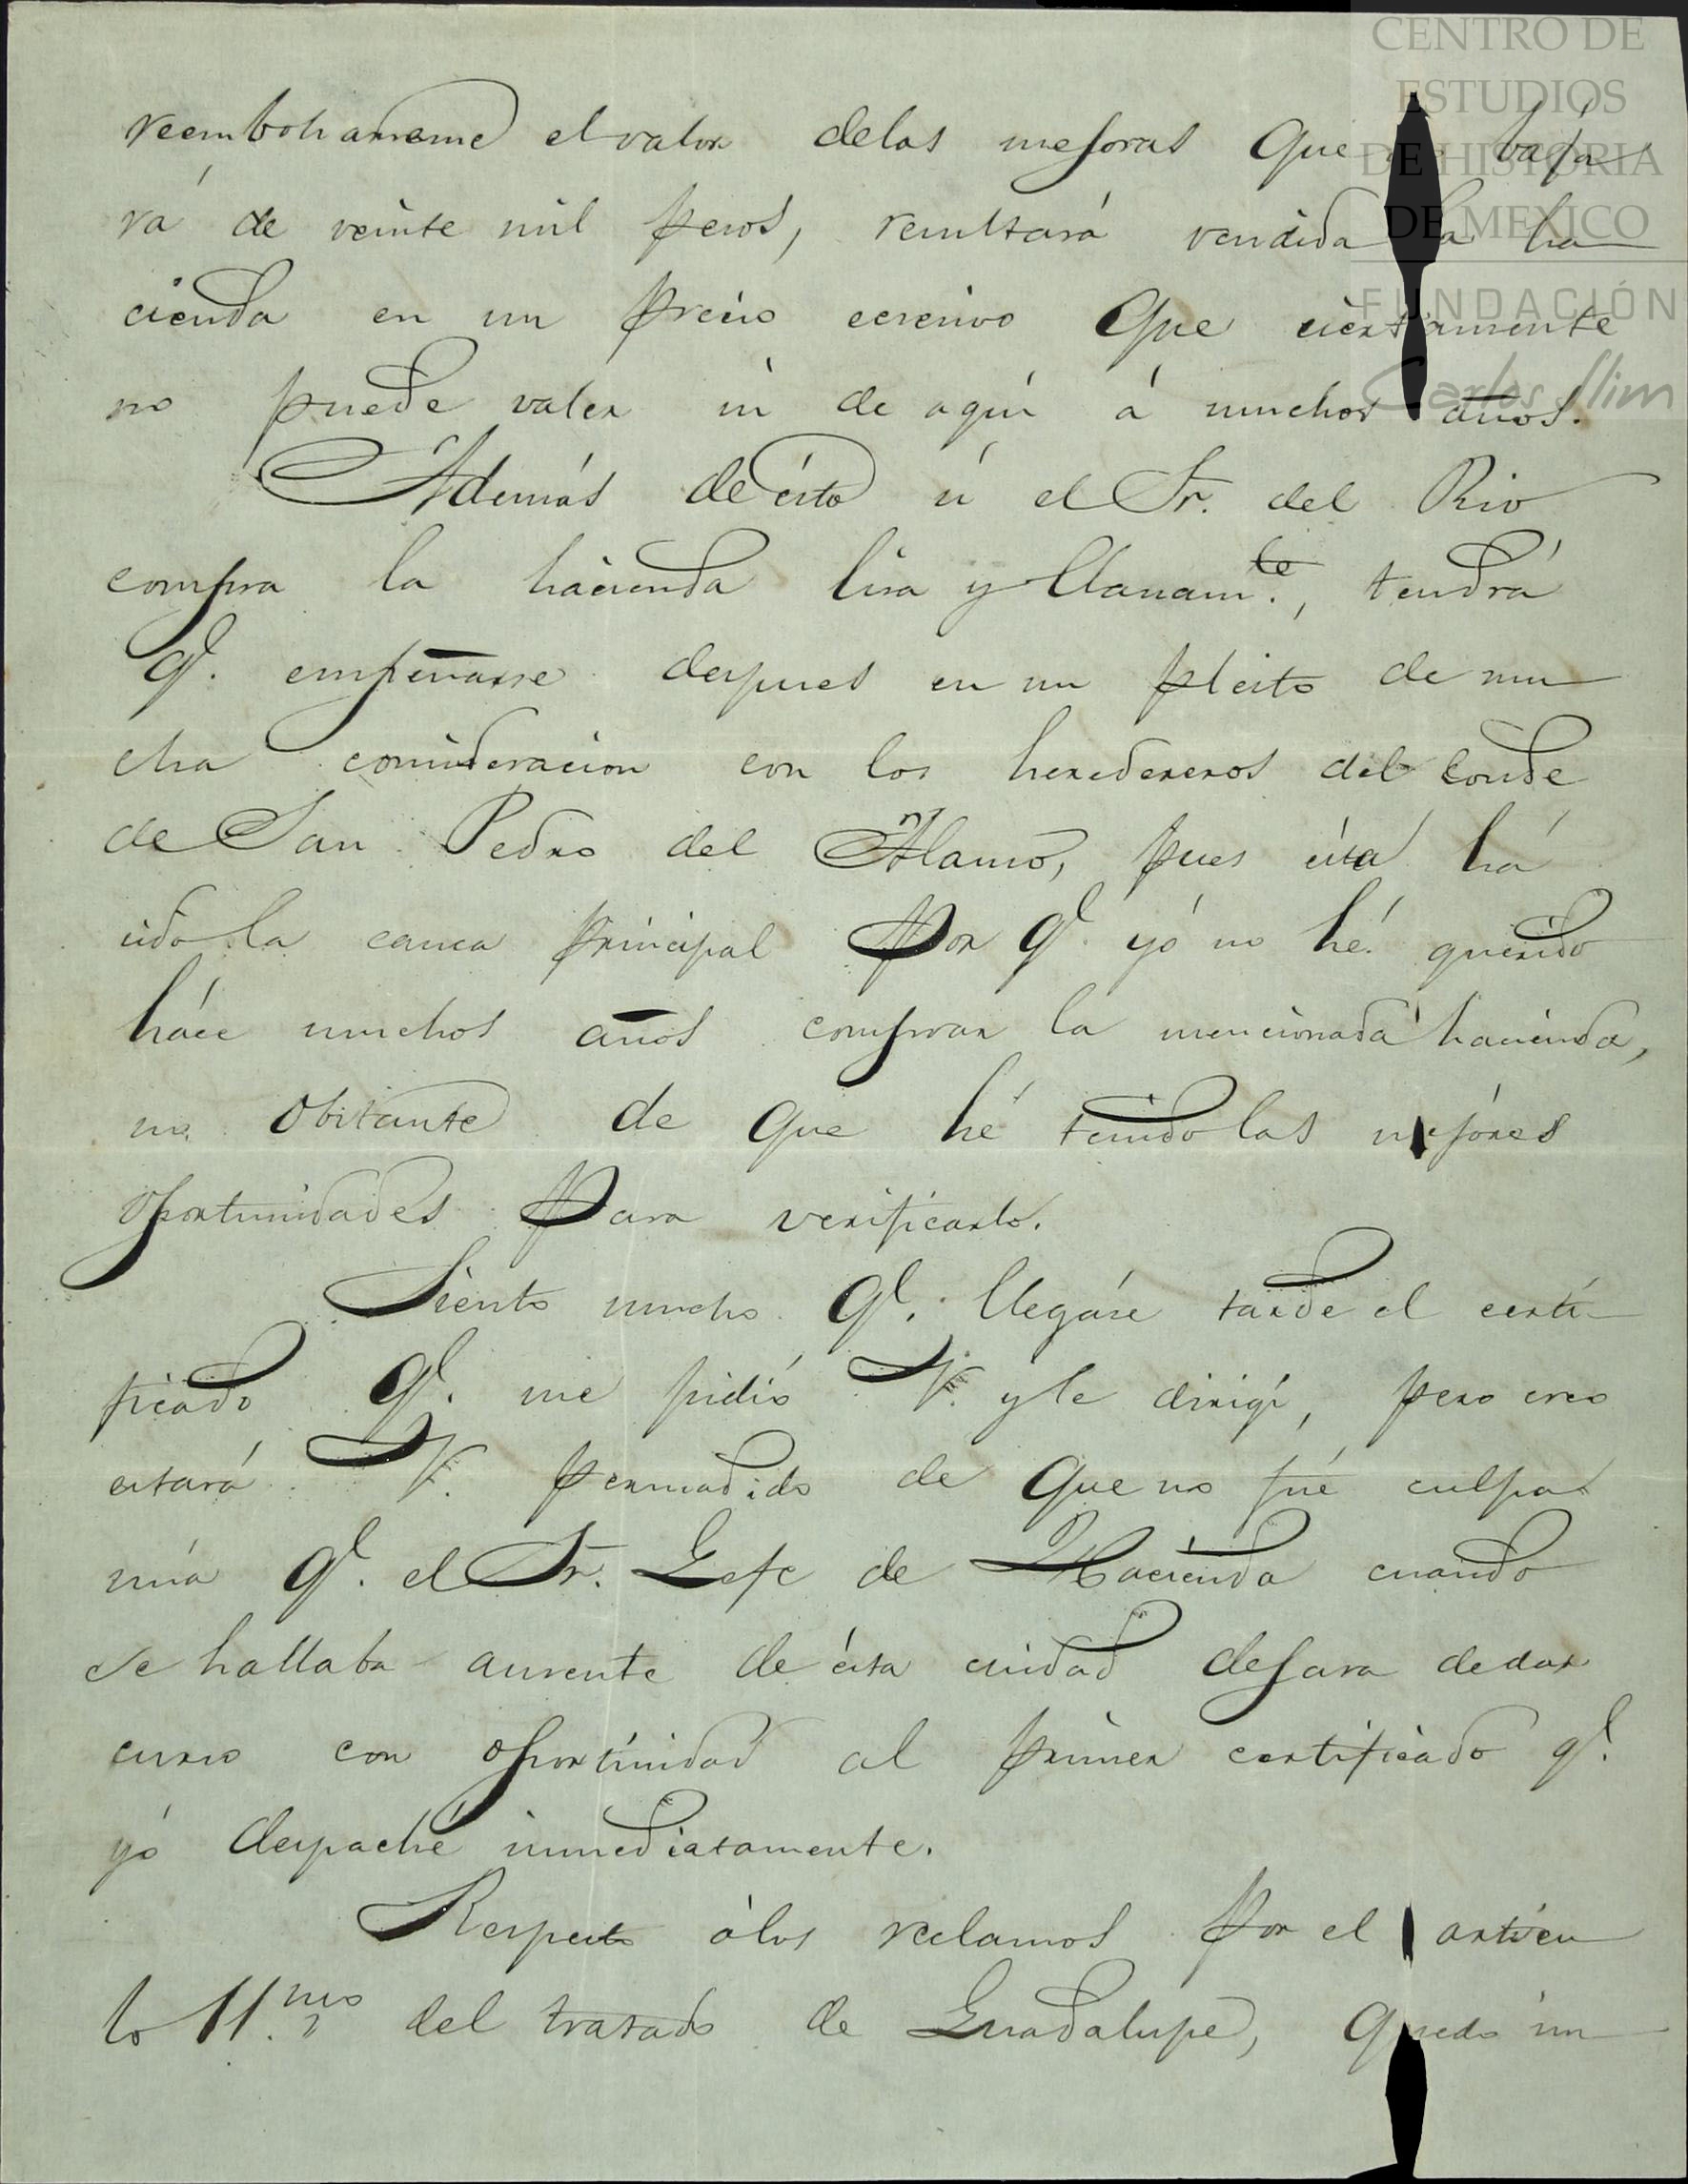 CENTRO DE
ESTUDIOS
DE HISTORIA
DE MEXICO
FUNDACIÓN
Carlos Slim
reembolsarseme el valor delas mejoras que baja
rá de veinte mil pesos, resultará vendida la ha
cienda en un precio ecsesivo que ciertamente
no puede valer ni de aquí á muchos años.
Además de ésto si el Sr. del Rio
compra la hacienda lisa y llanam.te, tendrá
q.e empeñarse despues en un pleito de mu
cha consideracion con los herederos del Conde
de San Pedro del Alamo, pues ésta há
sido la causa principal por q.e yó no hé querido
háce muchos años comprar la mencionada hacienda,
no obstante de que hé tenido las mejóres
oportunidades para verificarlo.
Siento mucho q.e llegáse tarde el certi-
ficado q.e me pidió V. y le dirigí, pero creo
estará V. persuadido de que no fué culpa
mía q.e el Sr. Gefe de Hacienda cuando
se hallaba ausente de ésta ciudad dejara de dar
curso con oportunidad al primer certificado q.e
yó despaché inmediatamente.
Respecto álos reclamos por el artícu
lo 11.mo del tratado de Guadalupe, quedo im